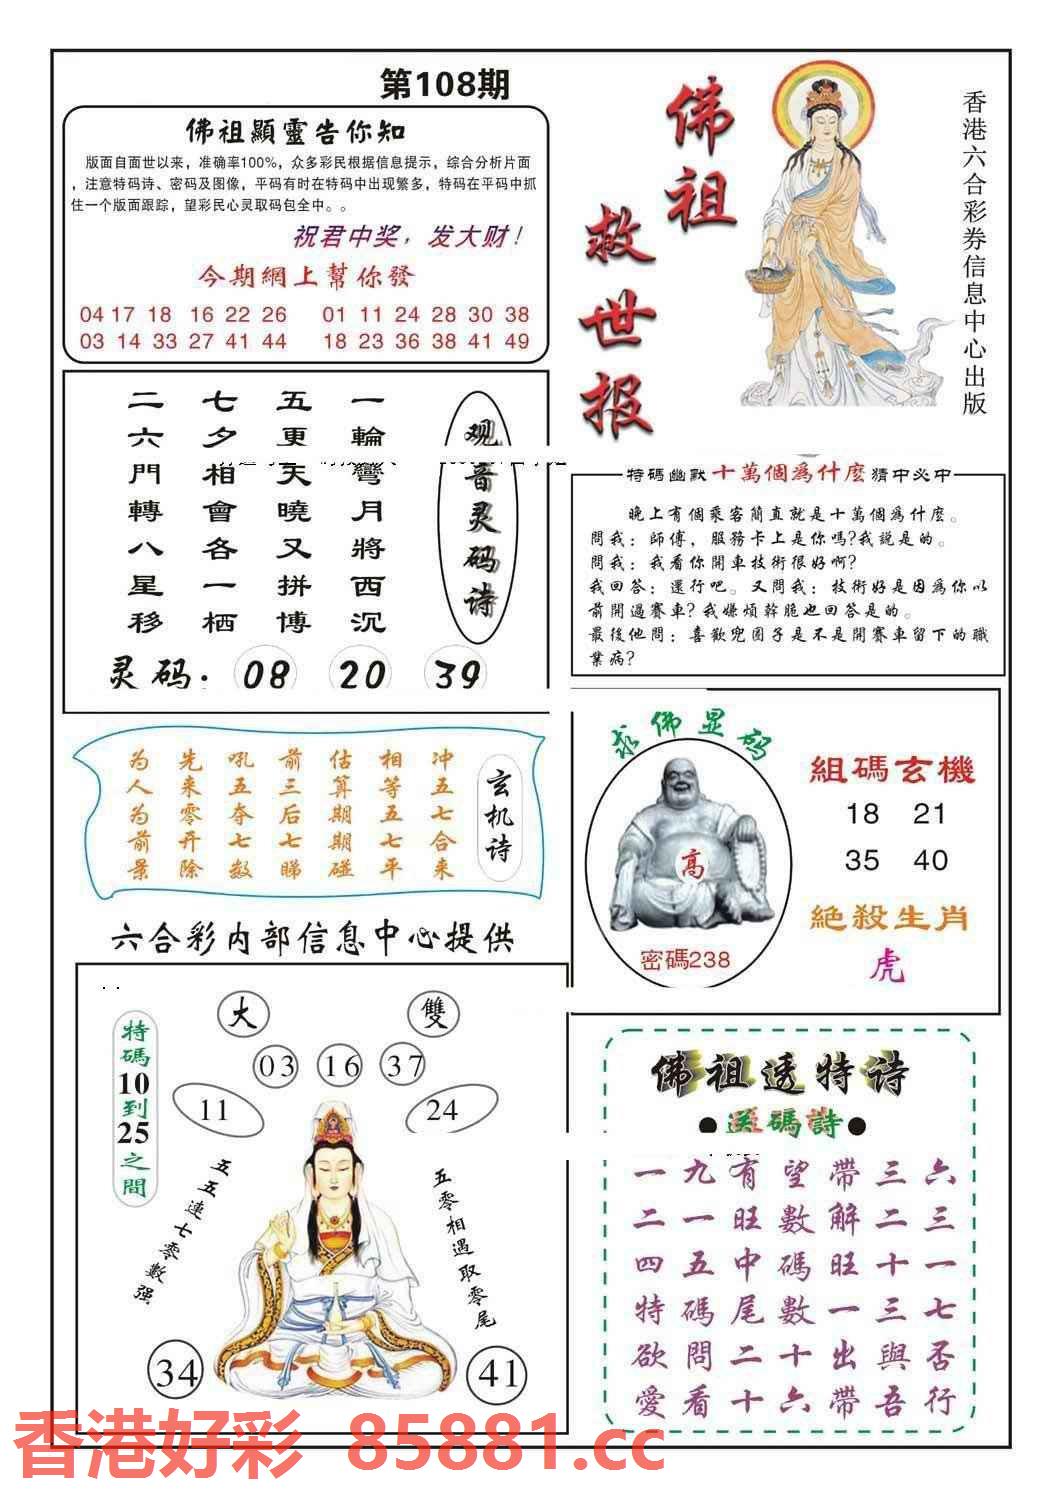 第108期
佛祖顯靈告你知
版面自面世以来，准确率100%，众多彩民根据信息提示，综合分析片面
，注意特码诗、密码及图像，平码有时在特码中出现繁多，特码在平码中抓
住一个版面跟踪，望彩民心灵取码包全中。。
祝君中奖，发大财！
今期網上幫你發
04 17 18 16 22 26 01 11 24 28 30 38
03 14 33 27 41 44 18 23 36 38 41 49
佛祖
救世报
香港六合彩券信息中心出版
观音灵码诗
一輪彎月將西沉
五更天曉又拼博
七夕相會各一栖
二六門轉八星移
灵码：08 20 39
特碼幽默十萬個為什麼猜中必中
晚上有個乘客簡直就是十萬個為什麼。
問我：師傅，服務卡上是你嗎?我說是的。
問我：我看你開車技術很好啊?
我回答：還行吧。又問我：技術好是因為你以
前開過賽車?我嫌煩幹脆也回答是的。
最後他問：喜歡兜圈子是不是開賽車留下的職
業病?
玄机诗
冲五七合来
相等五七平
估算期期碰
前三后七睇
吼五夺七数
先来零开除
为人为前景
求佛显码
高
密碼238
組碼玄機
18 21
35 40
絕殺生肖
虎
六合彩内部信息中心提供
大 雙
03 16 37
11 24
特碼10到25之間
五五連七零數强
五零相遇取零尾
34 41
佛祖透特诗
●送碼詩●
一九有望帶三六
二一旺數解二三
四五中碼旺十一
特碼尾數一三七
欲問二十出與否
愛看十六帶吾行
香港好彩 85881.cc